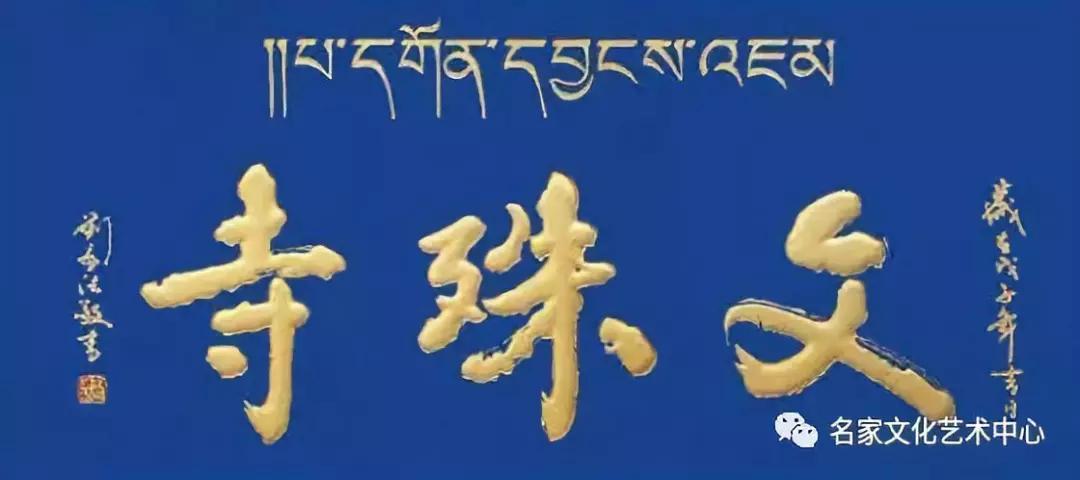 །།པ་དགོན་དབྱངས་འཇམ
歲在戊子年吉日
文殊寺
敬書
名家文化艺术中心